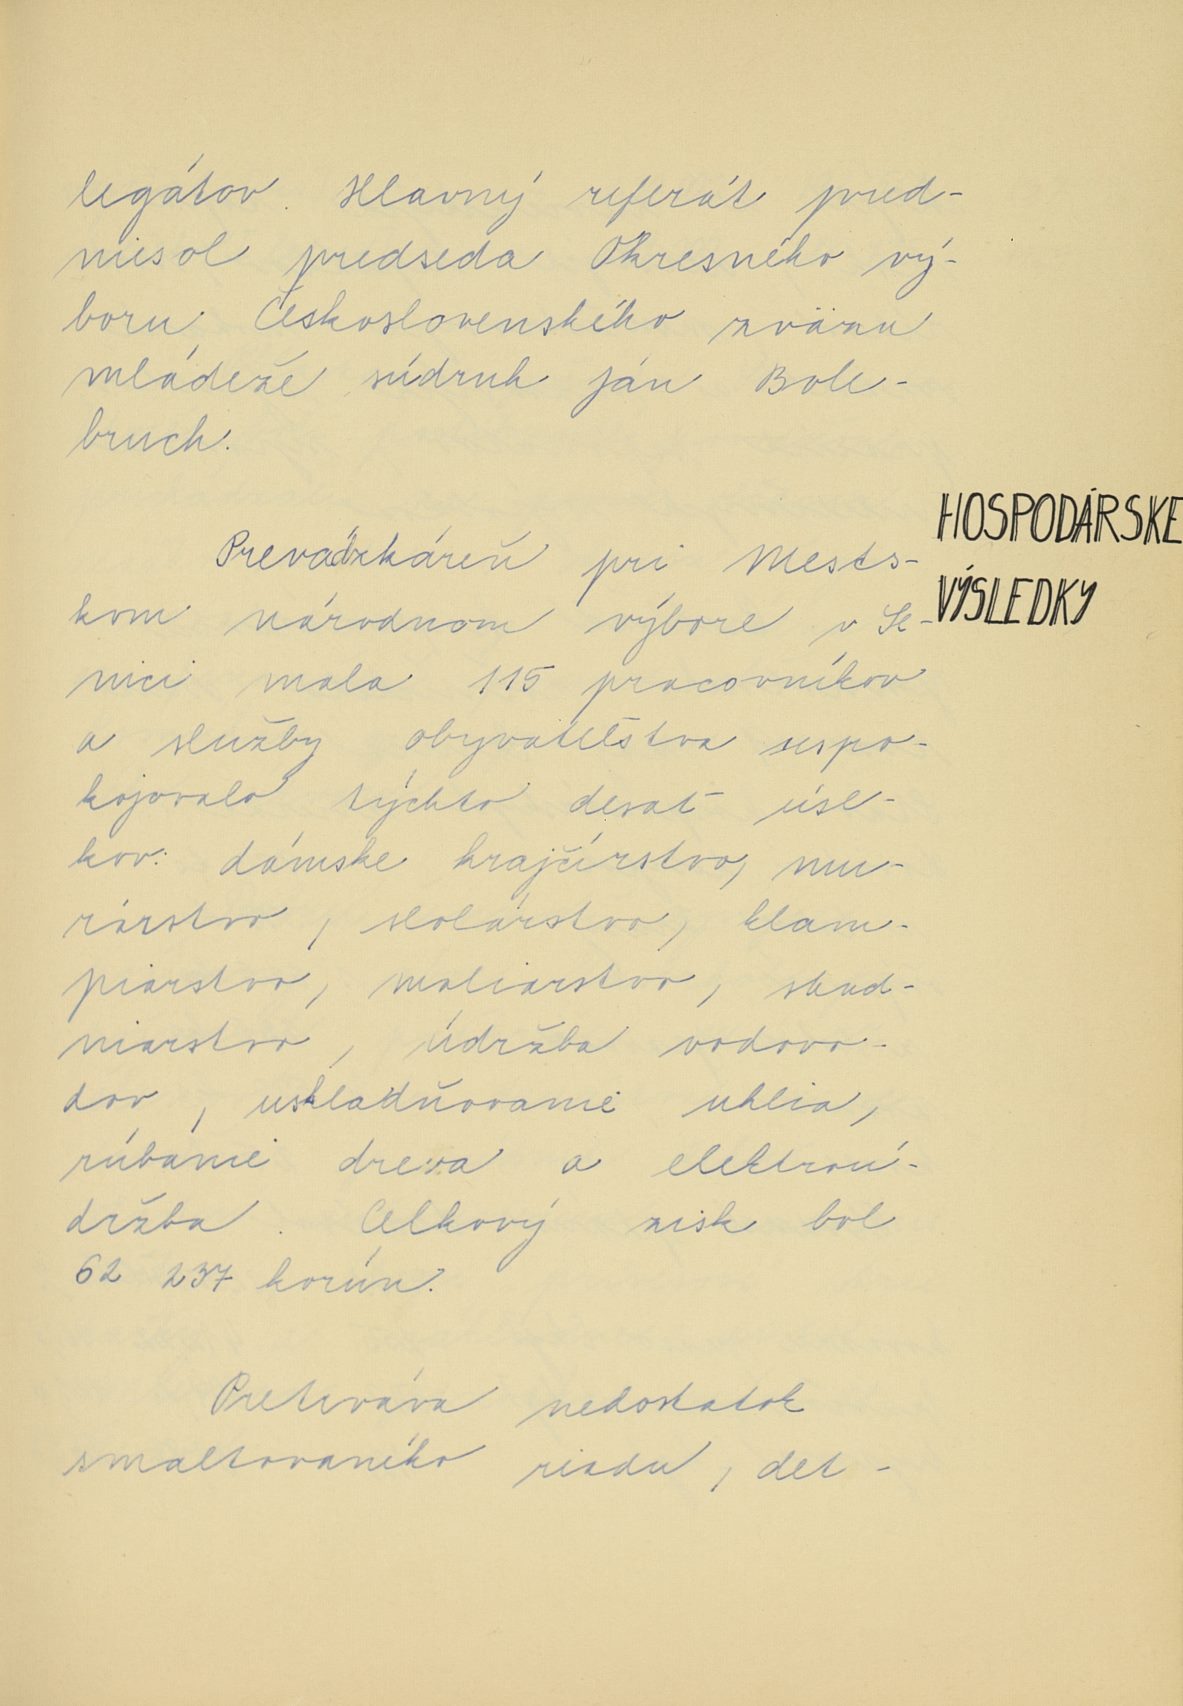 legátov. Hlavný referát pred-
niesol predseda Okresného vý-
boru Československého zväzu
mládeže súdruh Ján Bole-
bruch.
HOSPODÁRSKE
VÝSLEDKY
Prevádzkáreň pri Mests-
kom národnom výbore v Se-
nici mala 115 pracovníkov
a služby obyvateľstva uspo-
kojovalo týchto devať úse-
kov: dámske krajčírstvo, mu-
rárstvo, stolárstvo, klam-
piarstvo, maliarstvo, stud-
niarstvo, údržba vodovo-
dov, uskladňovanie uhlia,
rúbanie dreva a elektroú-
držba. Celkový zisk bol
62 237 korún.
Pretrváva nedostatok
smaltovaného riadu, det-